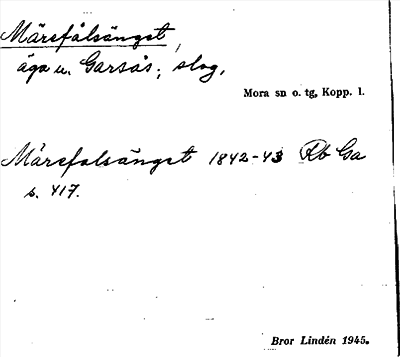 Märefålsänget,
äga u. Garsås; slog.
Mora sn o. tg, Kopp. l.
Märefalsänget 1842-43 Rb Ga
s. 417.
Bror Lindén 1945.